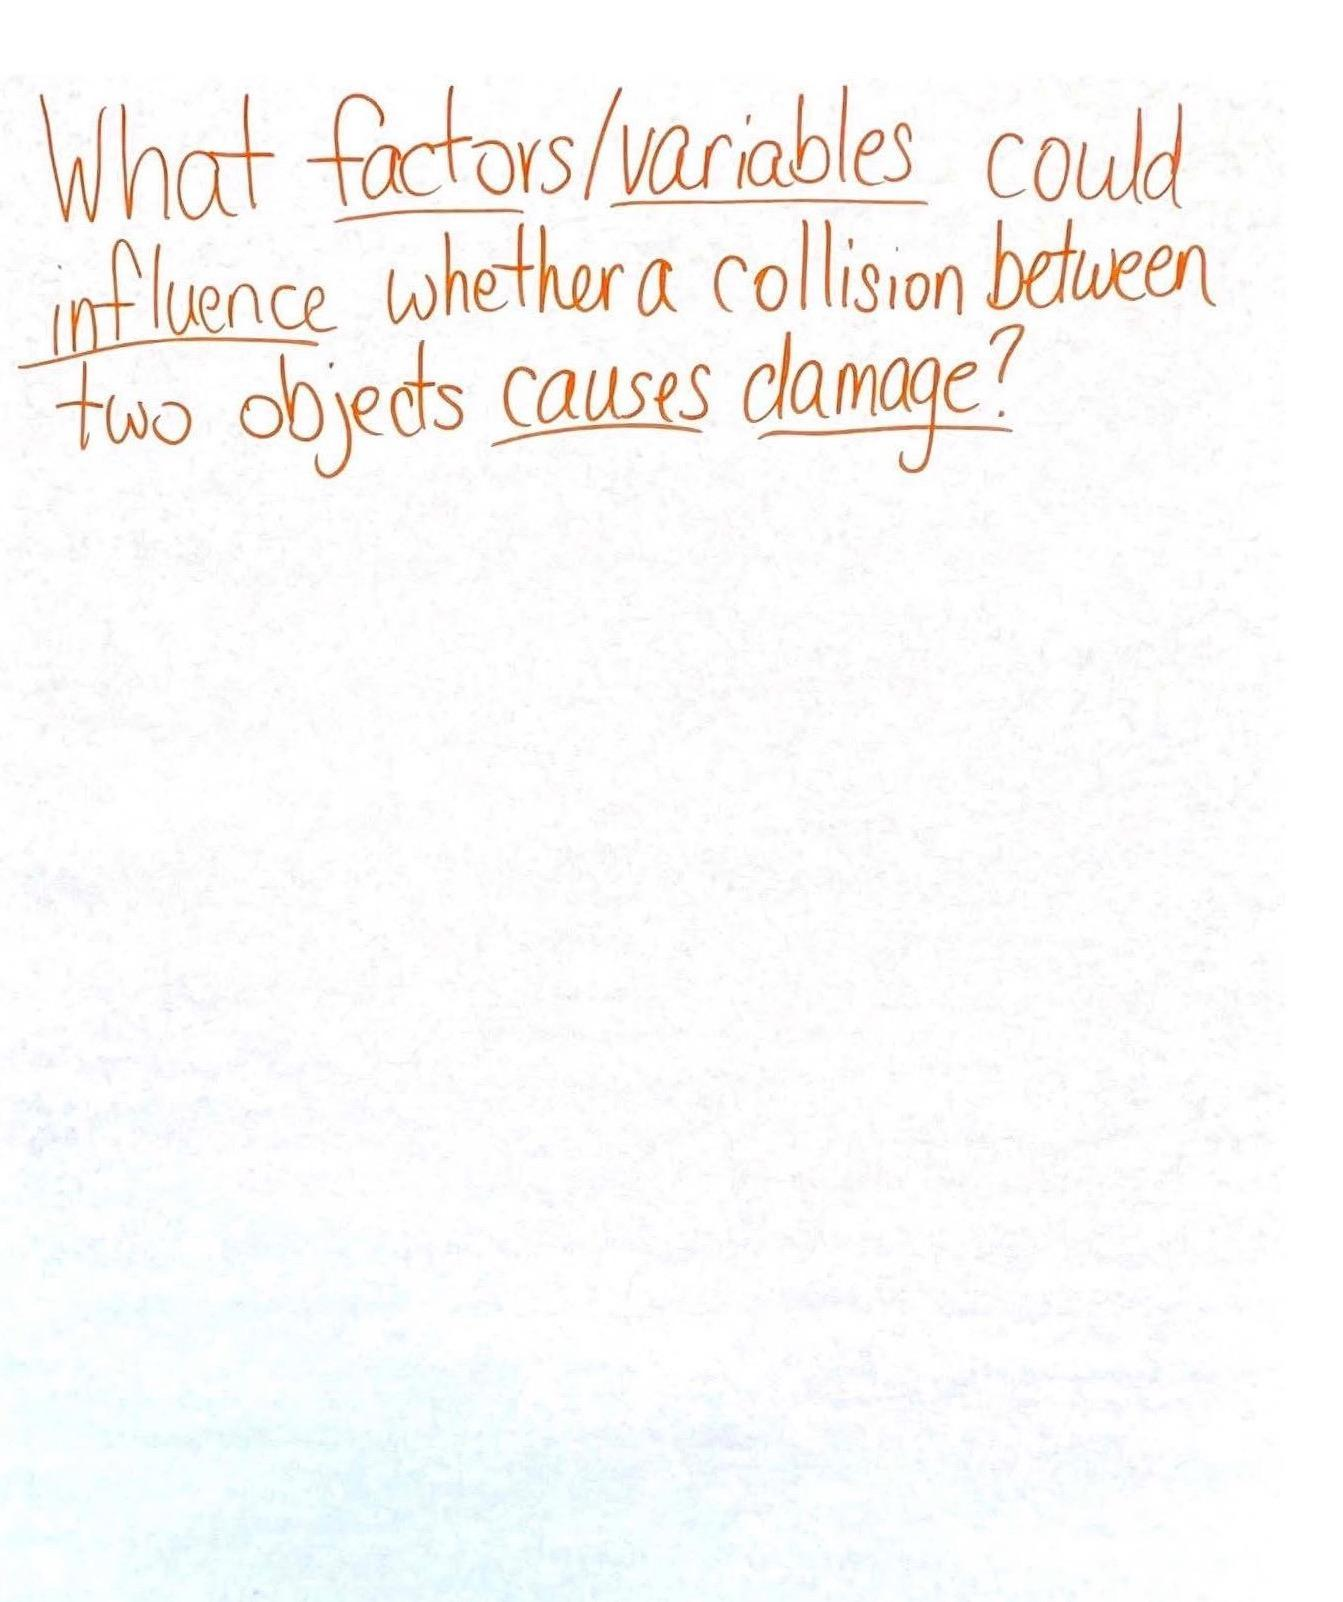 What factors/variables could
influence whether a collision between
two objects causes damage?